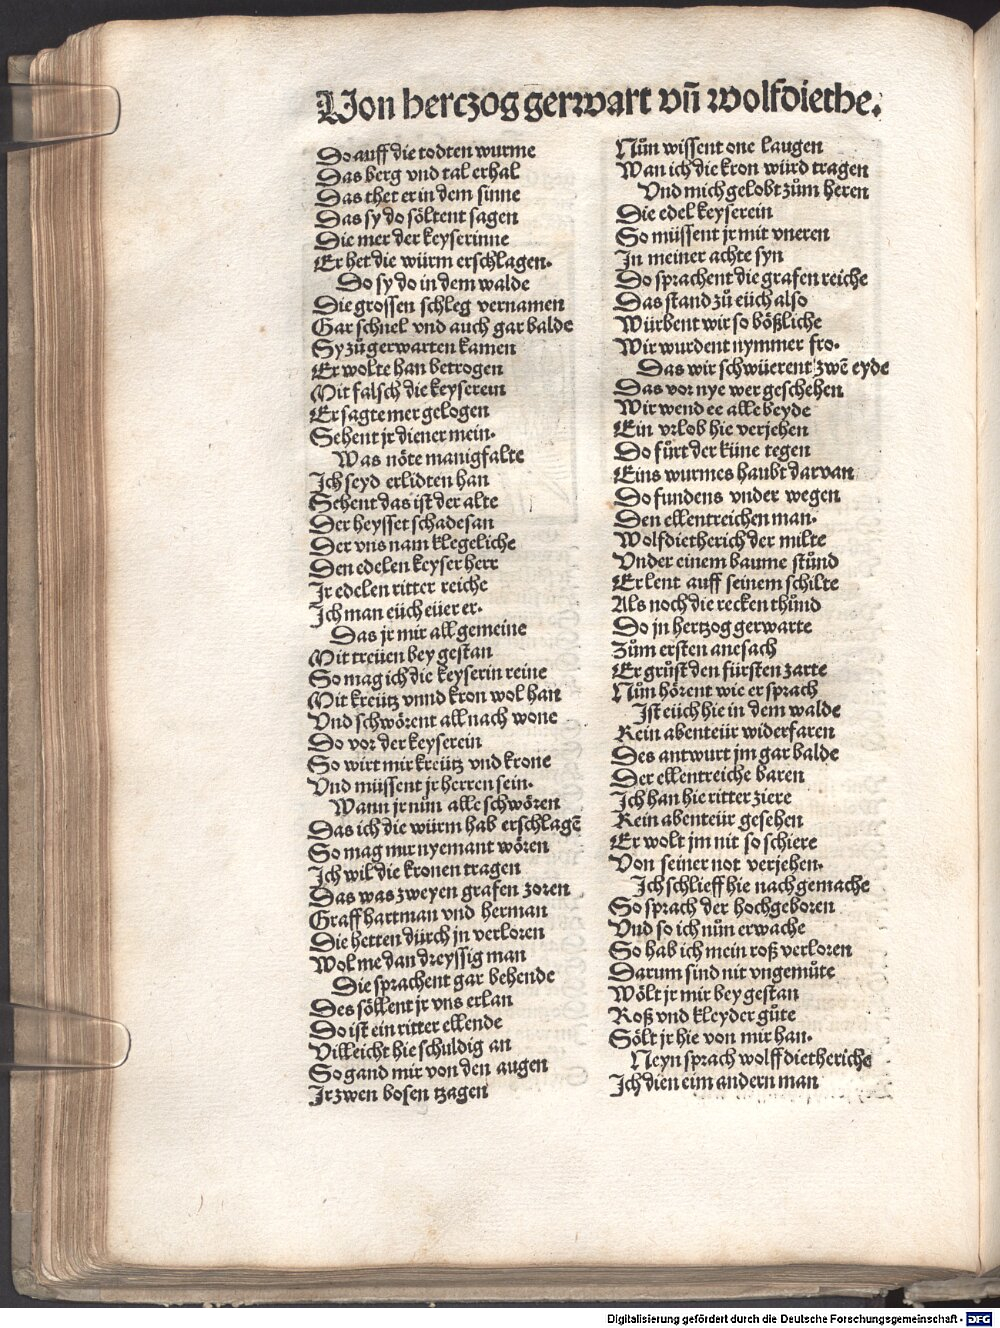 Von herczog gerwart vñ wolfdiethe.
So auff die todten wurme
Das berg vnd tal erhal
Das thet er in dem sinne
Das sy do söltent sagen
Die mer der keyserinne
Er het die würm erschlagen.
Do sy do in dem walde
Die grossen schleg vernamen
Gar schnel vnd auch gar balde
Sy zů gerwarten kamen
Er wolte han betrogen
Mit falsch die keyserein
Er sagte mer gelogen
Sehent jr diener mein.
Was nöte manigfalte
Ich seyd erlidten han
Sehent das ist der alte
Der heysset schadesan
Der vns nam klegeliche
Den edelen keyser herr
Ir edelen ritter reiche
Ich man eüch eüer er.
Das jr mir all gemeine
Mit treüen bey gestan
So mag ich die keyserin reine
Mit kreütz vnnd kron wol han
Vnd schwörent all nach wone
Do vor der keyserein
So wirt mir kreütz vnd krone
Vnd müssent jr herren sein.
Wann jr nůn alle schwören
Das ich die würm hab erschlagē
So mag mir nyemant wören
Ich wil die kronen tragen
Das was zweyen grafen zoren
Graff hartman vnd herman
Die hetten durch jn verloren
Wol me dan dreyssig man
Die sprachent gar behende
Des söllent jr vns erlan
Do ist ein ritter ellende
Villeicht hie schuldig an
So gand mir von den augen
Ir zwen bosen tzagen
Nůn wissent one laugen
Wan ich die kron würd tragen
Vnd mich gelobt zům heren
Die edel keyserein
So müssent jr mit vneren
In meiner achte syn
Do sprachent die grafen reiche
Das stand zů eüch also
Würbent wir so bößliche
Wir wurdent nymmer fro.
Das wir schwüerent zwē eyde
Das vor nye wer geschehen
Wir wend ee alle beyde
Ein vrlob hie verjehen
Do fürt der küne tegen
Eins wurmes haubt darvan
Do fundens vnder wegen
Den ellentreichen man.
Wolfdietherich der milte
Vnder einem baume stůnd
Er lent auff seinem schilte
Als noch die recken thůnd
Do jn hertzog gerwarte
Zům ersten anesach
Er grůst den fürsten zarte
Nůn hörent wie er sprach
Ist eüch hie in dem walde
Kein abenteür widerfaren
Des antwurt jm gar balde
Der ellentreiche baren
Ich han hie ritter ziere
Kein abenteür gesehen
Er wolt jm nit so schiere
Von seiner not verjehen.
Ich schlieff hie nach gemache
So sprach der hochgeboren
Vnd so ich nün erwache
So hab ich mein roß verloren
Darum sind nit vngemůte
Wölt jr mir bey gestan
Roß vnd kleyder gůte
Sölt jr hie von mir han.
Neyn sprach wolffdietheriche
Ich dien eim andern man
Digitalisierung gefördert durch die Deutsche Forschungsgemeinschaft - DFG